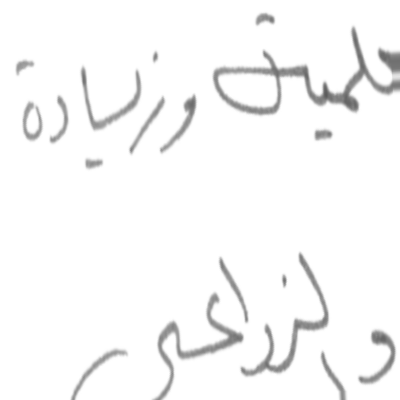 علمية وزيادة
والزراعي